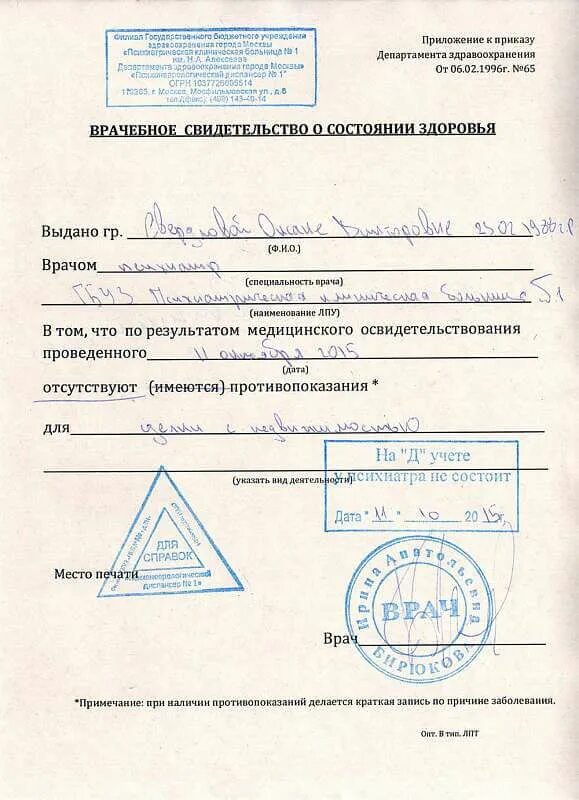 Филиал Государственного бюджетного учреждения
здравоохранения города Москвы
«Психиатрическая клиническая больница № 1
им. Н.А. Алексеева
Департамента здравоохранения города Москвы»
«Психоневрологический диспансер № 1»
ОГРН
г. Москва, Мосфильмовская ул., д.6
Приложение к приказу
Департамента здравоохранения
От 06.02.1996г. №65
ВРАЧЕБНОЕ СВИДЕТЕЛЬСТВО О СОСТОЯНИИ ЗДОРОВЬЯ
Выдано гр. Свердловой Оксане Викторовне
(Ф.И.О.)
Врачом психиатр
(специальность врача)
ГБУЗ Психиатрическая клиническая больница №1
(наименование ЛПУ)
В том, что по результатом медицинского освидетельствования
проведенного 11 октября 2015
(дата)
отсутствуют (имеются) противопоказания *
для сделки с недвижимостью
(указать вид деятельности)
На "Д" учете
у психиатра не состоит
Дата " 11 " 10 2015г.
ДЛЯ
СПРАВОК
Психоневрологический
диспансер № 1
Место печати
Ирина Анатольевна
ВРАЧ
БИРЮКОВА
Врач
*Примечание: при наличии противопоказаний делается краткая запись по причине заболевания.
Опт. В тип. ЛПТ